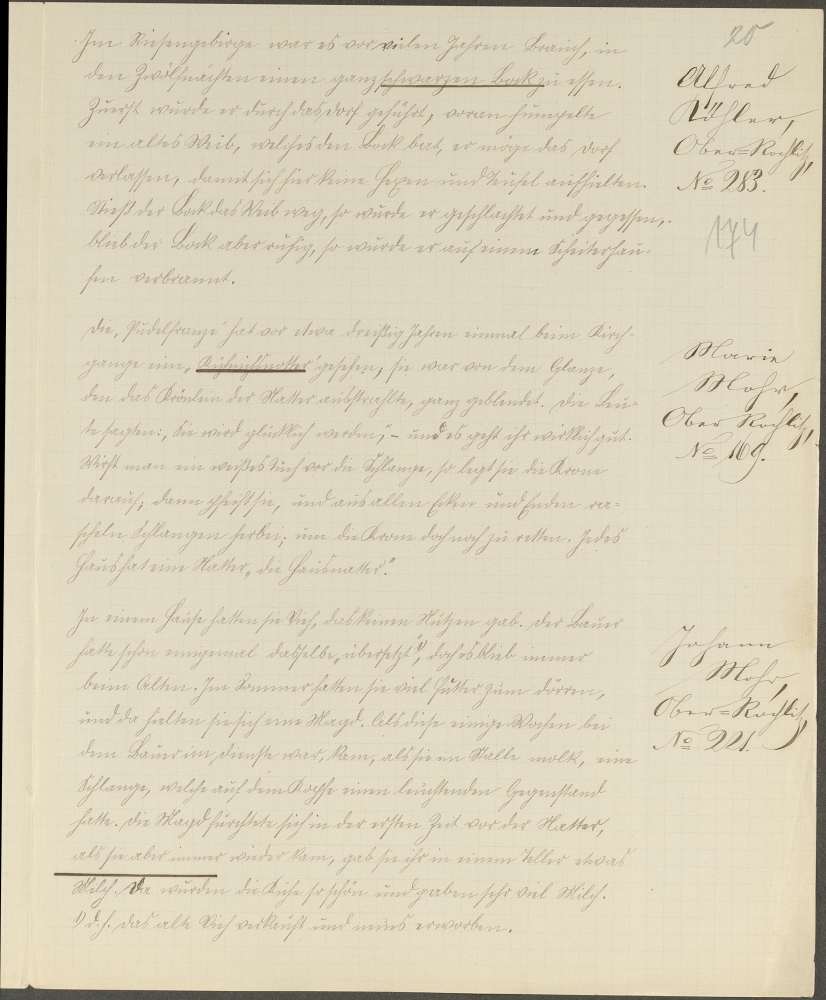 20
Im Riesengebirge war es vor vielen Jahren Brauch, in
den Zwölfnächten einen ganz schwarzen Bock zu essen.
Zuerst wurde er durch das Dorf geführt, voran humpelte
ein altes Weib, welches den Bock bat, er möge das Dorf
verlassen, damit sich hier keine Hexen und Teufel aufhielten.
Stieß der Bock das Weib weg, so wurde er geschlachtet und gegessen,
blieb der Bock aber ruhig, so wurde er auf einem Scheiterhau-
fen verbrannt.
Alfred
Köhler,
Ober-Rochlitz,
No 283.
174
Die „Pudelfranze“ hat vor etwa dreißig Jahren einmal beim Kirch-
gange eine „ gesehen, sie war von dem Glanze,
den das Krönlein der Natter ausstrahlte, ganz geblendet. Die Leu-
te sagten: „Sie wird glücklich werden“, – und es geht ihr wirklich gut.
Wirft man ein weißes Tuch vor die Schlange, so legt sie die Krone
darauf, dann pfeift sie, und aus allen Ecken und Enden ra-
scheln Schlangen herbei, um die Krone doch noch zu retten. Jedes
Haus hat eine Natter, die „Hausnatter“.
Marie
Mohr,
Ober Rochlitz,
No 169.
In einem Hause hatten sie Vieh, das keinen Nutzen gab. Der Bauer
hatte schon einigemal dasselbe „übersetzt“1), doch es blieb immer
beim Alten. Im Sommer hatten sie viel Futter zum dörren,
und da hielten sie sich eine Magd. Als diese einige Wochen bei
dem Bauer im Dienste war, kam, als sie im Stalle molk, eine
Schlange, welche auf dem Kopfe einen leuchtenden Gegenstand
hatte. Die Magd fürchtete sich in der ersten Zeit vor der Natter,
als sie aber immer wieder kam, gab sie ihr in einem Teller etwas
Milch. Da wurden die Kühe so schön und gaben sehr viel Milch.
1) d.h. das alte Vieh verkauft und neues erworben.
Johann
Mohr,
Ober-Rochlitz,
No 221.